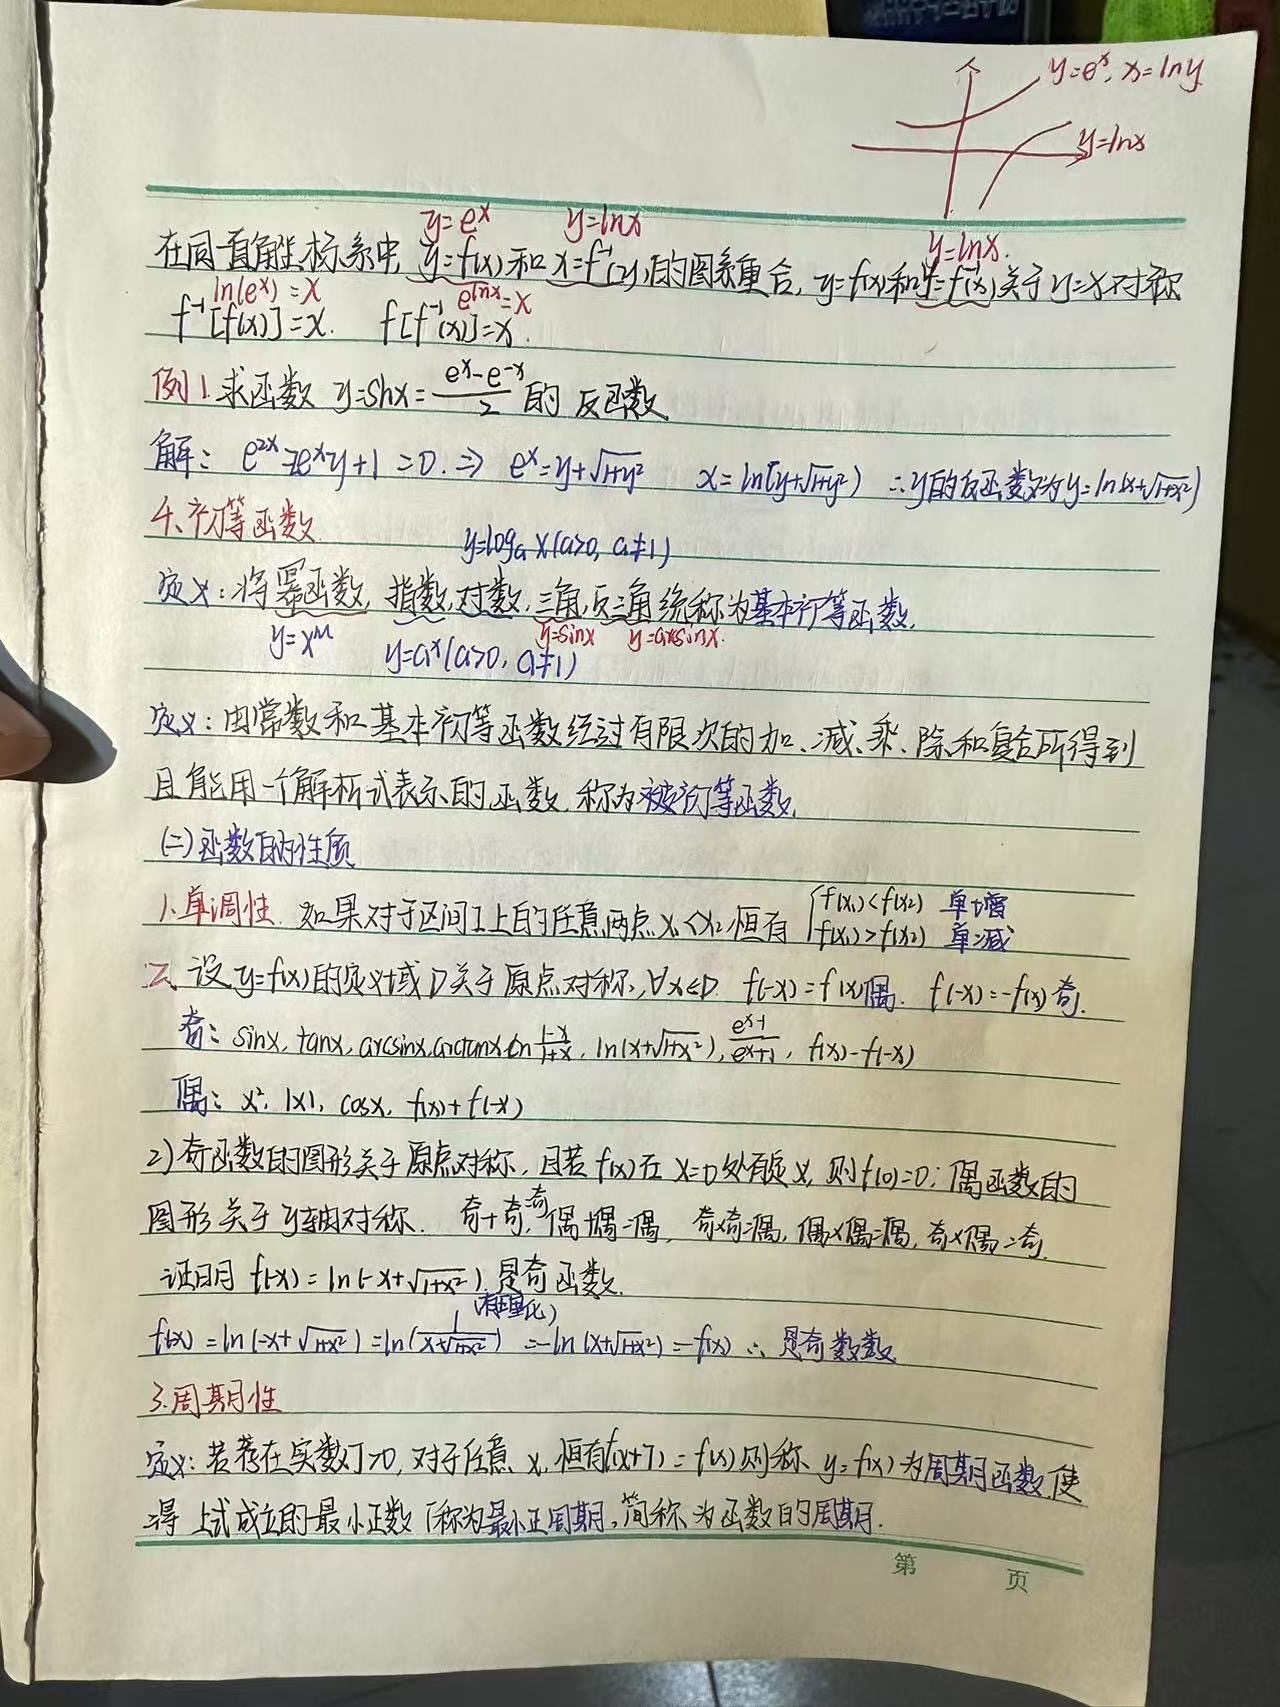 y=eˣ, x=lny
y=lnx
y=eˣ y=lnx y=lnx.
在同一直角坐标系中, y=f(x)和 x=f⁻¹(y)的图象重合, y=f(x)和y=f⁻¹(x)关于y=x对称
ln(eˣ)=x e^(lnx)=x
f⁻¹[f(x)]=x. f[f⁻¹(x)]=x.
例1.求函数 y=shx=(eˣ-e⁻ˣ)/2 的反函数
解: e²ˣ-2eˣy+1=0.⇒ eˣ=y+√(1+y²) x=ln(y+√(1+y²)) ∴y的反函数为y=ln(x+√(1+x²))
4、初等函数
y=logₐx(a>0, a≠1)
定义:将幂函数, 指数,对数,三角,反三角统称为基本初等函数.
y=xᴹ y=aˣ(a>0, a≠1) y=sinx y=arcsinx.
定义:由常数和基本初等函数经过有限次的加、减、乘、除和复合所得到
且能用一个解析式表示的函数,称为被初等函数.
(二)函数的性质
1.单调性. 如果对于区间I上的任意两点x₁<x₂恒有 { f(x₁)<f(x₂) 单增
f(x₁)>f(x₂) 单减
2、设y=f(x)的定义域D关于原点对称,∀x∈D. f(-x)=f(x)偶. f(-x)=-f(x)奇.
奇: sinx, tanx, arcsinx,arctanx,ln (1-x)/(1+x), ln(x+√(1+x²)), (eˣ-1)/(eˣ+1), f(x)-f(-x)
偶: x², |x|, cosx, f(x)+f(-x)
2)奇函数的图形关于原点对称,且若f(x)在x=0处有定义,则f(0)=0;偶函数的
图形关于y轴对称. 奇+奇=奇,偶+偶=偶, 奇×奇=偶,偶×偶=偶,奇×偶=奇.
证明 f(-x)=ln(-x+√(1+x²)).是奇函数.
(有理化)
f(-x)=ln(-x+√(1+x²))=ln(1/(x+√(1+x²))) =-ln(x+√(1+x²))=-f(x) ∴是奇数数
3.周期性
定义:若存在实数T>0,对于任意x,恒有f(x+T)=f(x)则称y=f(x)为周期函数.使
得上式成立的最小正数T称为最小正周期,简称为函数的周期.
第 页